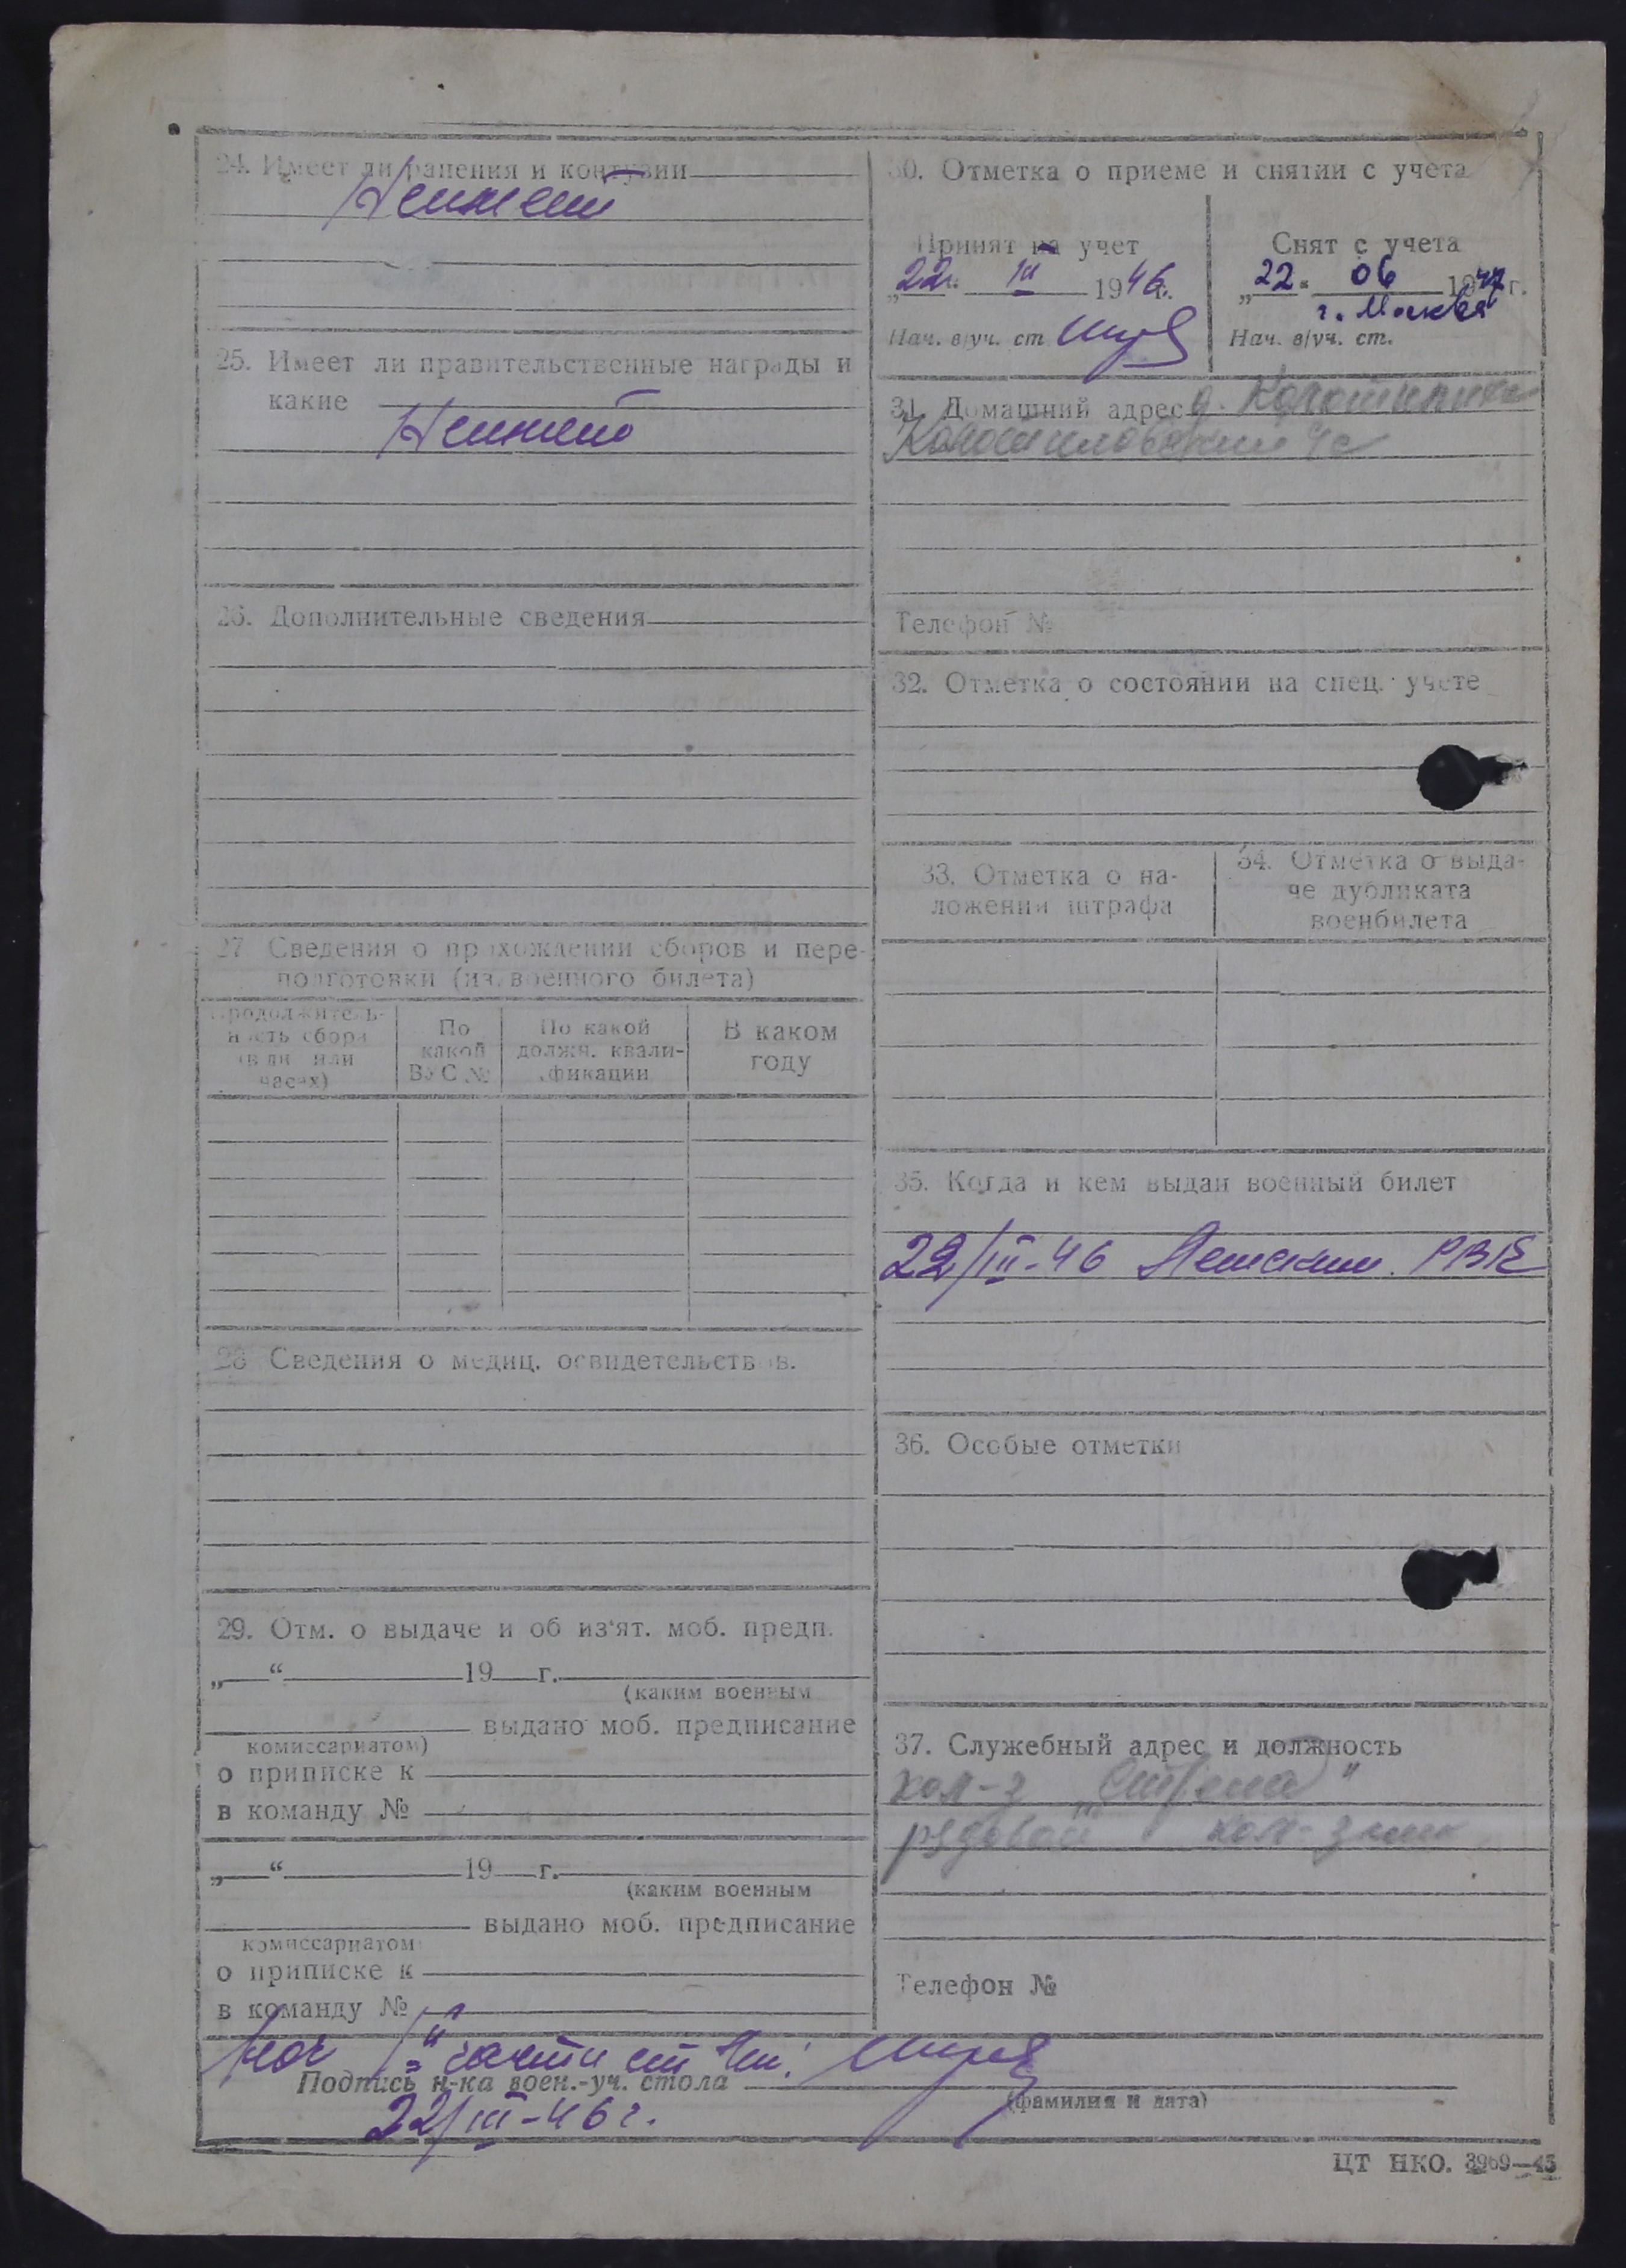 24. Имеет ли ранения и контузии
Не имеет
25. Имеет ли правительственные награды и
какие
Не имеет
26. Дополнительные сведения
27 Сведения о прохождении сборов и пере-
подготовки (из военного билета)
Продолжитель-
ность сбора
(в дн. или
часах)
По
какой
ВУС №
По какой
должн. квали-
фикации
В каком
году
28 Сведения о медиц. освидетельствов.
29. Отм. о выдаче и об из'ят. моб. предп.
„ “ 19 г.
(каким военным
выдано моб. предписание
комиссариатом)
о приписке к
в команду №
„ “ 19 г.
(каким военным
выдано моб. предписание
комиссариатом
о приписке к
в команду №
30. Отметка о приеме и снятии с учета
Принят на учет
„22“ III 1946 г.
Нач. в/уч. ст
Снят с учета
„22“ 06 1947 г.
г. Москва
Нач. в/уч. ст.
31. Домашний адрес д.
с/с
Телефон №
32. Отметка о состоянии на спец. учете
33. Отметка о на-
ложении штрафа
34. Отметка о выда-
че дубликата
военбилета
35. Когда и кем выдан военный билет
22/III-46 РВК
36. Особые отметки
37. Служебный адрес и должность
кол-з
рядовой кол-зник
Телефон №
Нач части ст
Подпись н-ка воен.-уч. стола
(фамилия и дата)
22/III-46 г.
ЦТ НКО. 3969—45